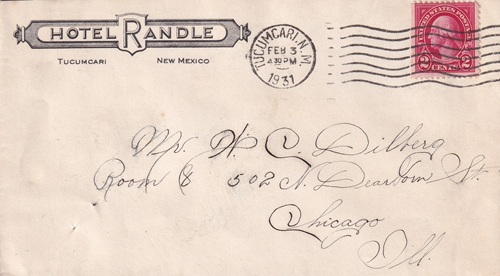 HOTEL RANDLE
TUCUMCARI NEW MEXICO
TUCUMCARI, N.M.
FEB 3
4 30 PM
1931
UNITED STATES POSTAGE
2 CENTS 2
Mr. W. C. Dilberg
Room 8 502 N. Dearborn St.
Chicago
Ill.